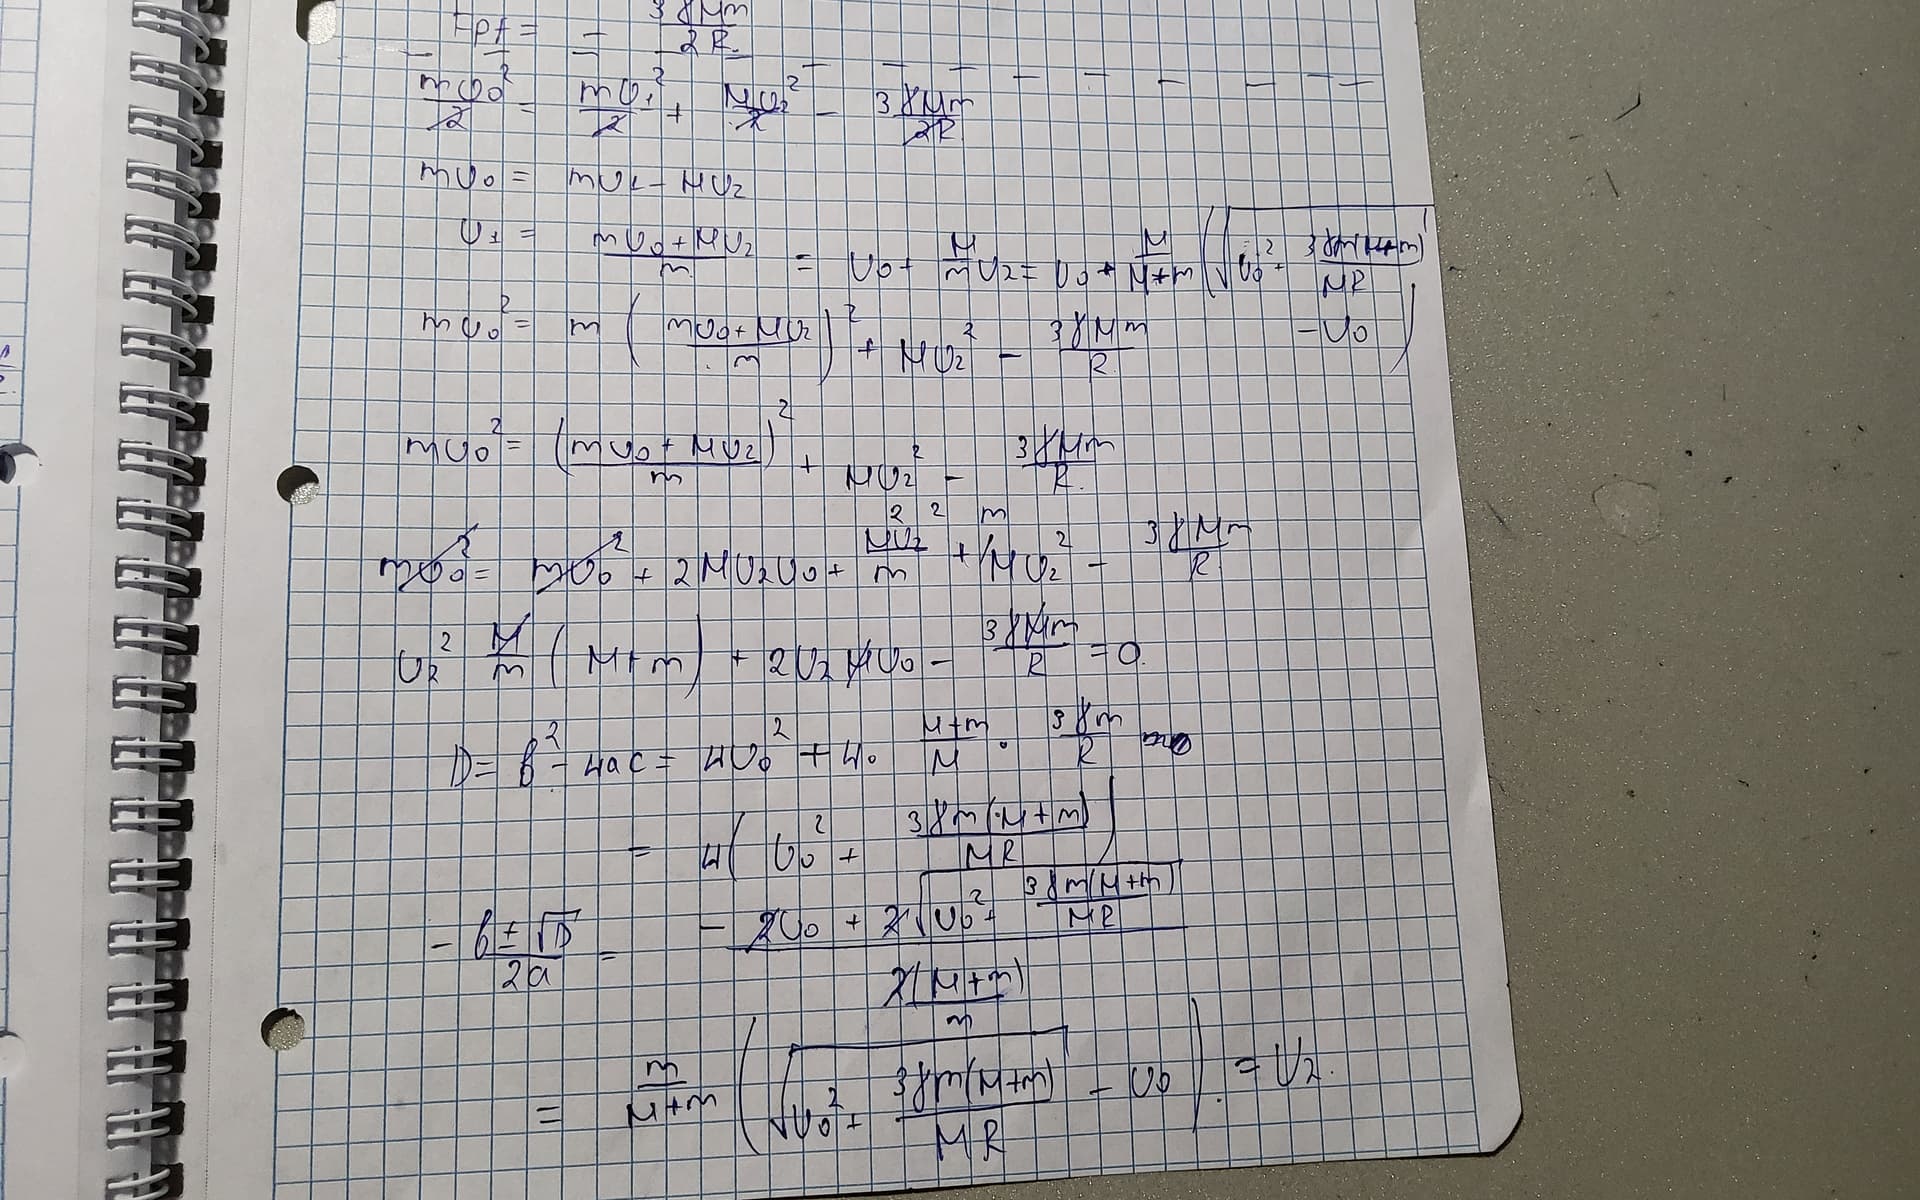 Ept = = 3γMm/2R
mυ₀²/2 = mυ₁²/2 + Mυ₂²/2 - 3γMm/2R
mυ₀ = mυ₁ - Mυ₂
υ₁ = (mυ₀ + Mυ₂)/m = υ₀ + M/m υ₂ = υ₀ + M/(M+m) (√(υ₀² + 3γm(M+m)/MR) - υ₀)
mυ₀² = m ((mυ₀ + Mυ₂)/m)² + Mυ₂² - 3γMm/R
mυ₀² = (mυ₀ + Mυ₂)²/m + Mυ₂² - 3γMm/R
mυ₀² = mυ₀² + 2Mυ₂υ₀ + M²υ₂²/m + m/ Mυ₂² - 3γMm/R
υ₂² M/m (M+m) + 2υ₂Mυ₀ - 3γMm/R = 0
D = b² - 4ac = 4υ₀² + 4 · (M+m)/M · 3γm/R
= 4(υ₀² + 3γm(M+m)/MR)
(-b ± √D)/2a = (-2υ₀ + 2√(υ₀² + 3γm(M+m)/MR))/(2(M+m)/m)
= m/(M+m) (√(υ₀² + 3γm(M+m)/MR) - υ₀). = υ₂.